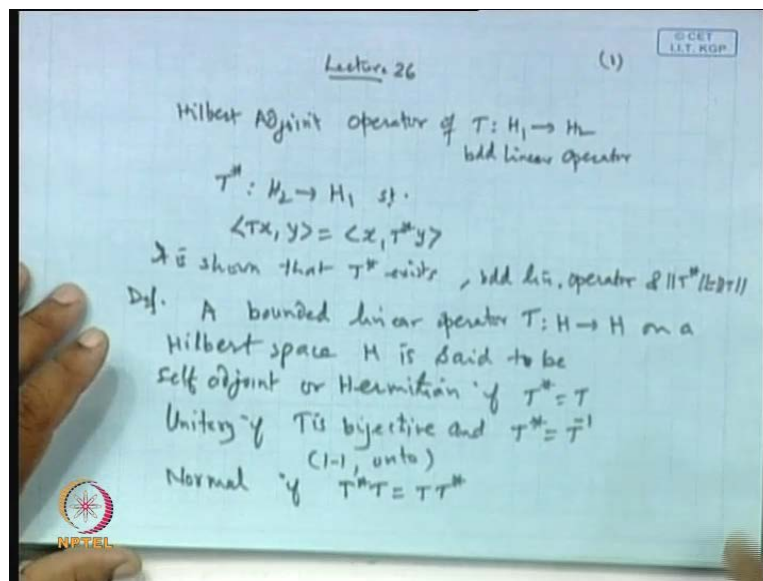 © CET
I.I.T. KGP
Lecture 26 (1)
Hilbert Adjoint operator of T: H₁ → H₂
bdd linear operator
T*: H₂ → H₁ st.
<Tx, y> = <x, T*y>
It is shown that T* exists, bdd lin. operator & ||T*|| = ||T||
Def. A bounded linear operator T: H → H on a
Hilbert space H is said to be
Self adjoint or Hermitian if T* = T
Unitary if T is bijective and T* = T⁻¹
(1-1, onto)
Normal if T*T = TT*
NPTEL